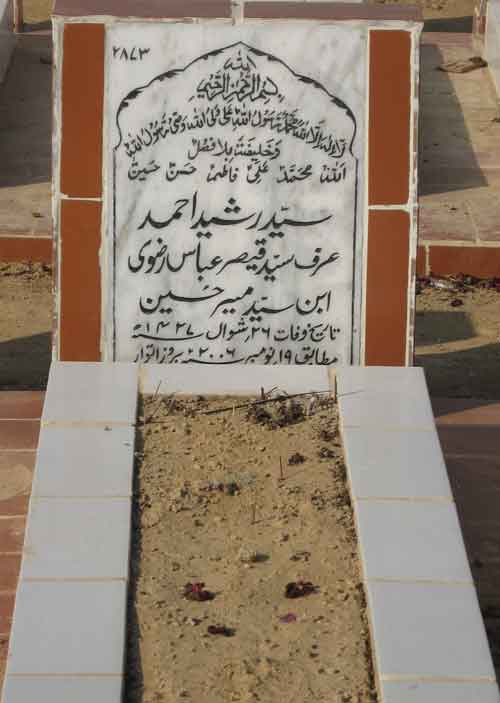 ۲۸۷۳
الله
بسم الله الرحمن الرحیم
لا اله الا الله محمد رسول الله علی ولی الله وصی رسول الله
وخلیفتہ بلا فصل
الله محمد علی فاطمہ حسن حسین
سید رشید احمد
عرف سید قیصر عباس رضوی
ابن سید میسر حسین
تاریخ وفات ۲۶ شوال ۱۴۲۷ھ
مطابق ۱۹ نومبر ۲۰۰۶ء بروز اتوار